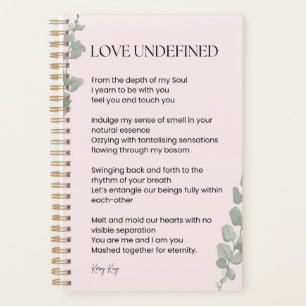 LOVE UNDEFINED
From the depth of my Soul
I yearn to be with you
feel you and touch you
Indulge my sense of smell in your
natural essence
Ozzying with tantalising sensations
flowing through my bosom
Swinging back and forth to the
rhythm of your breath
Let's entangle our beings fully within
each-other
Melt and mold our hearts with no
visible separation
You are me and I am you
Mashed together for eternity.